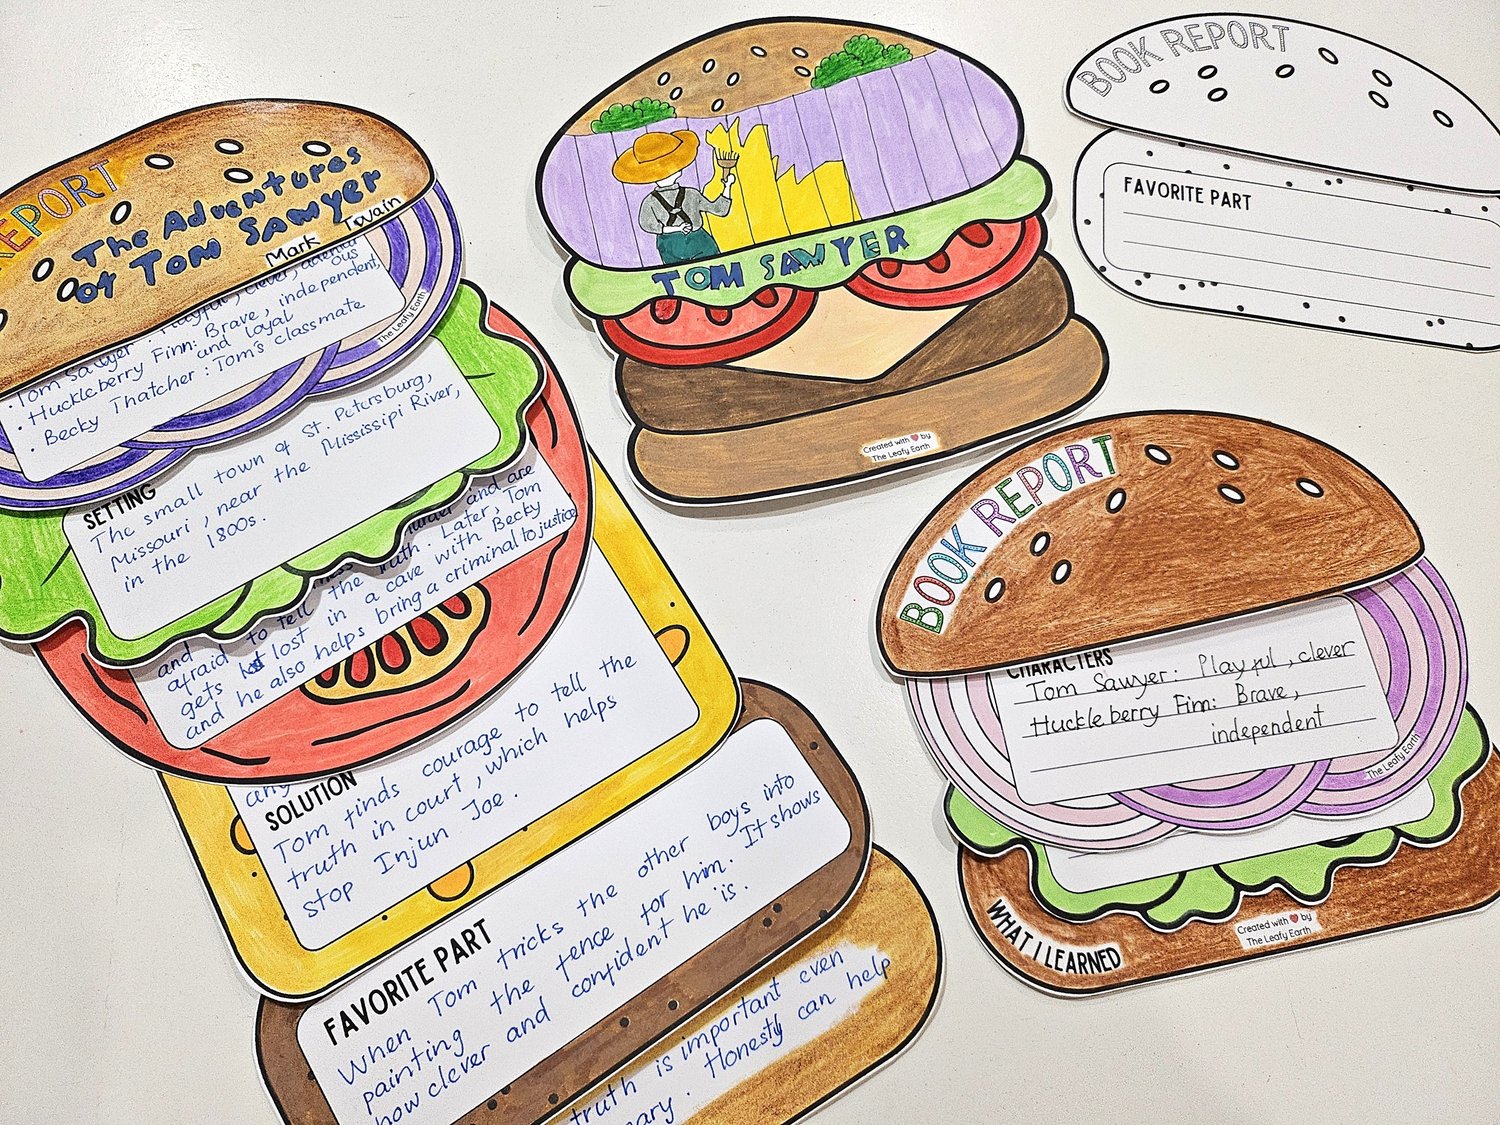 REPORT
The Adventures
of Tom Sawyer
Mark Twain
Tom Sawyer: Playful, clever,
Huckleberry Finn: Brave, independent,
and loyal
Becky Thatcher: Tom's classmate
The Leafy Earth
SETTING
The small town of St. Petersburg,
Missouri, near the Mississipi River,
in the 1800s.
murder and are
afraid to tell the truth. Later, Tom
gets lost in a cave with Becky
and he also helps bring a criminal to justice
SOLUTION
Tom finds courage to tell the
truth in court, which helps
stop Injun Joe.
FAVORITE PART
When Tom tricks the other boys into
painting the fence for him. It shows
how clever and confident he is.
truth is important even
Honesty can help
TOM SAWYER
Created with ❤ by
The Leafy Earth
BOOK REPORT
FAVORITE PART
BOOK REPORT
CHARACTERS
Tom Sawyer: Playful, clever
Huckleberry Finn: Brave,
independent
The Leafy Earth
WHAT I LEARNED
Created with ❤ by
The Leafy Earth